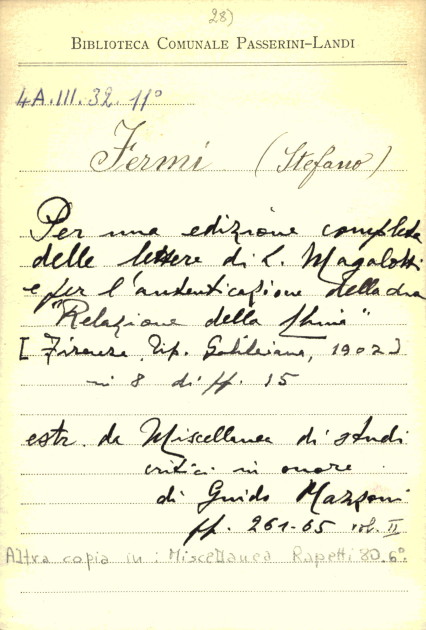 28)
BIBLIOTECA COMUNALE PASSERINI-LANDI
4A.III.32.11°
Fermi (Stefano)
Per una edizione completa
delle lettere di L. Magalotti
e per l'autenticazione della sua
"Relazione della China"
[Firenze, Tip. Galileiana, 1902]
in 8 di pp. 15
estr. da Miscellanea di studi
critici in onore
di Guido Mazzoni
pp. 261-65 vol. II
Altra copia in: Miscellanea Rapetti 80.6°.